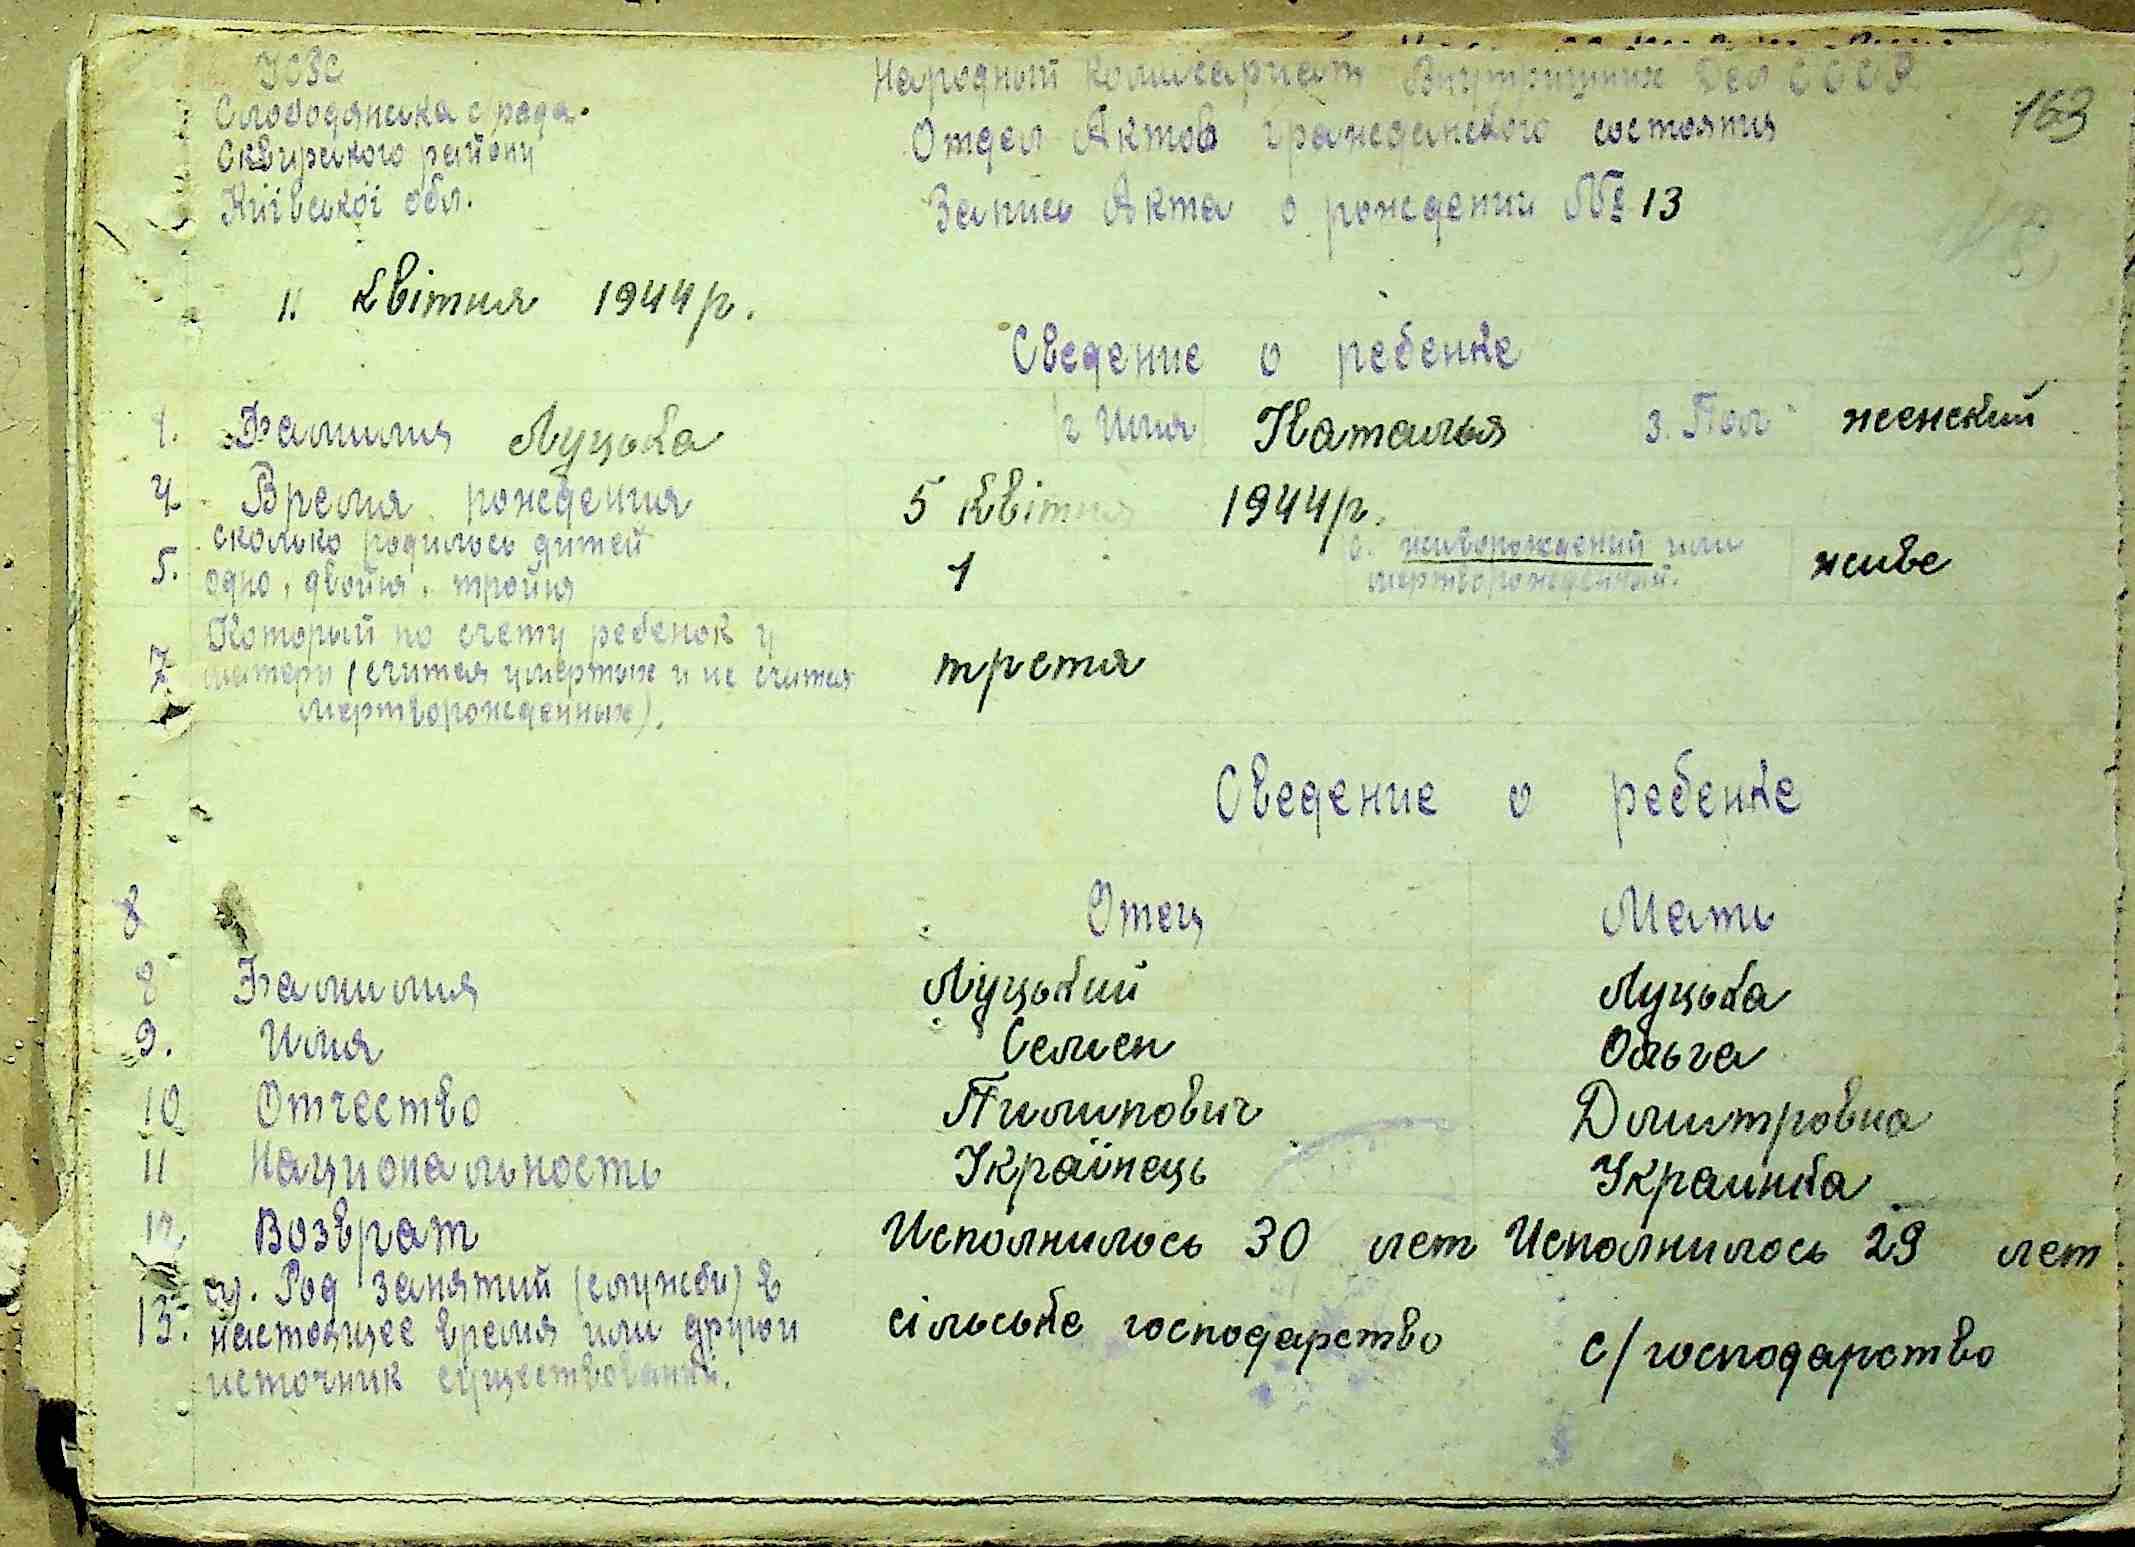 УСЗС
Слободянська с рада.
Сквирского району
Київської обл.
Народный Комисариат Внутришних Дел СССР
Отдел Актов гражданского состояния
163
Запись Акта о рождении № 13
11 квітня 1944 р.
Сведение о ребенке
1. Фамилия Луцька 2 Имя Наталья 3. Пол женский
4 Время рождения 5 квітня 1944 р.
5. сколько родилось дитей
одно, двойня, тройня 1 6. живорождений или
мертворожденный. живе
7 Который по счету ребенок у
матери (считая умертых и не считая
мертворожденных). третя
Сведение о ребенке
8 Отец Мать
8 Фамилия Луцький Луцька
9. Имя Семен Ольга
10 Отчество Пилипович Дмитровна
11 Национальность Українець Украинка
12 Возврат Исполнилось 30 лет Исполнилось 29 лет
13. Род занятий (службы) в
настоящее время или другои
источник существования. сільське господарство с/господарство